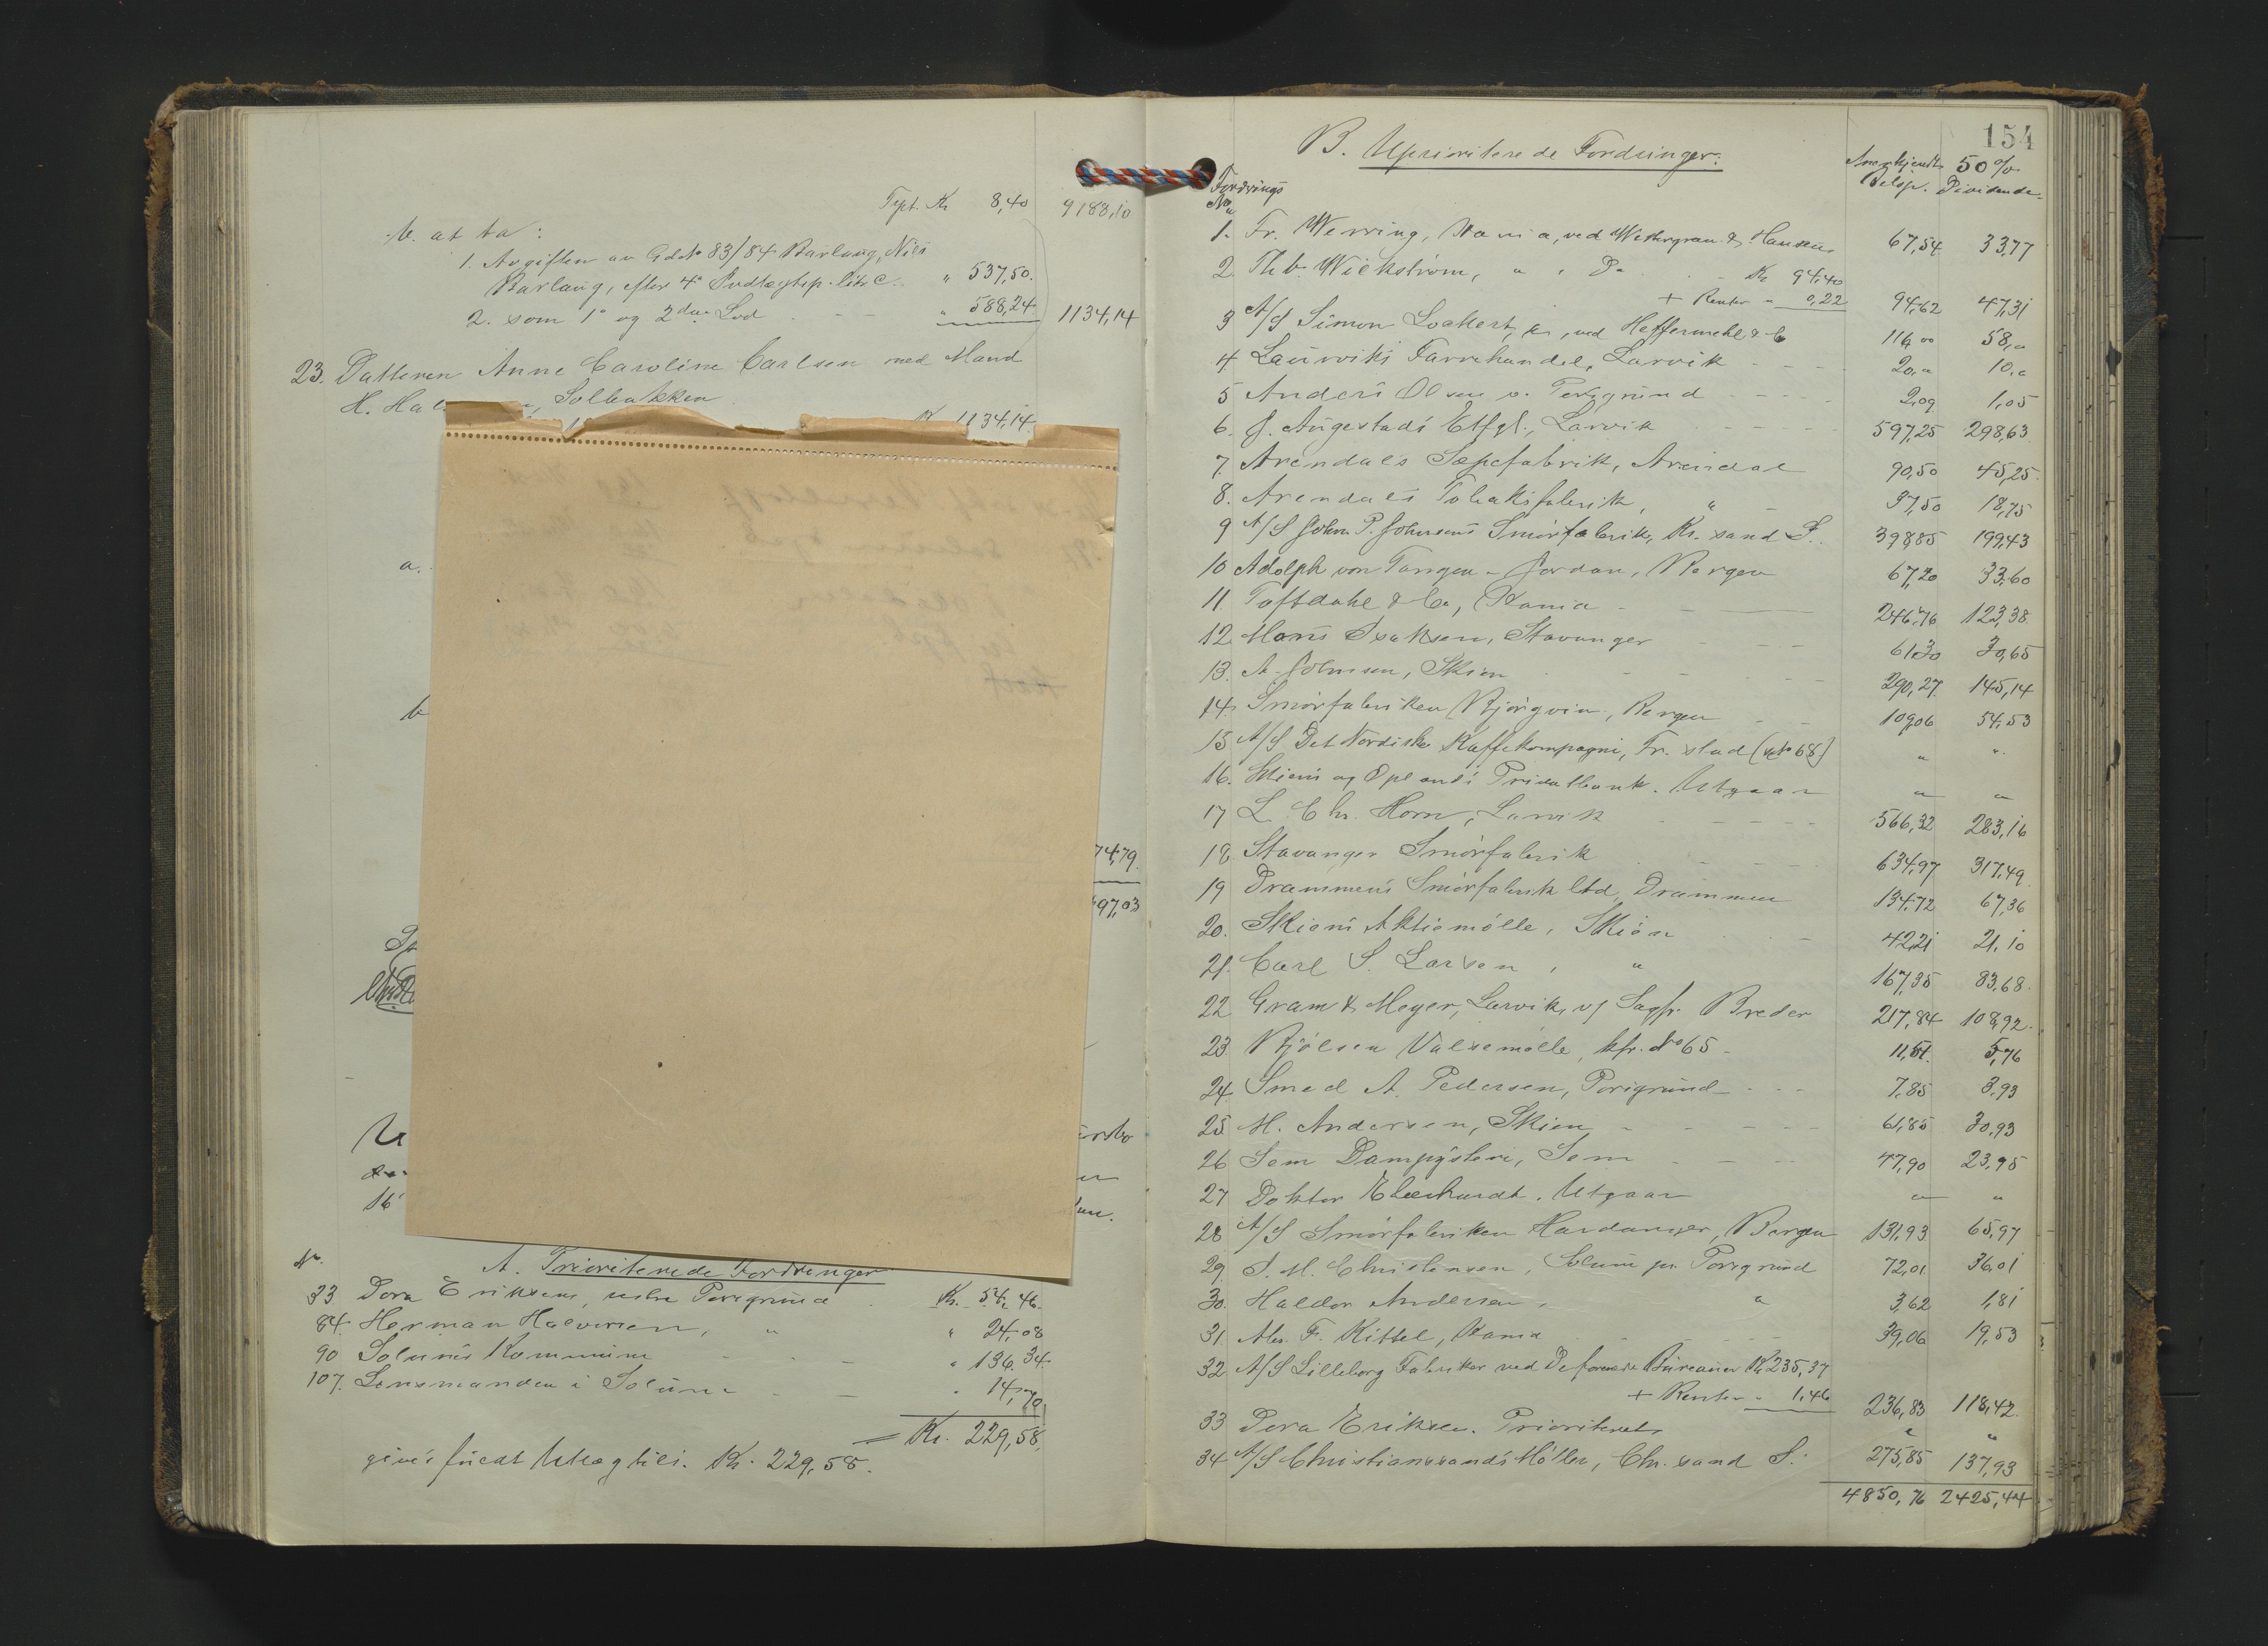 Tspt. Kr. 8,40 9188,10
b. at ta:
1. Avgiften av G.d. No 83/84 Barlaug, Nils
Barlaug, efter 4e Indtægtsp. litr. c. " 537,50.
2. som 1e og 2den Lod " 588,24 1134,14
23. Datteren Anne Caroline Carlsen med Mand
H. Hal Solbakken
Kr. 1134,14
a.
b
74,79.
97,03
16
No. A. Prioriterede Fordringer
33 Dora Eriksen, vestre Porsgrund Kr. 54,46.
84 Herman Halvorsen, " " 24,08
90 Solums Kommune " 136,34
107. Lensmanden i Solum " 14,70
= Kr. 229,58.
gives fuldt Utlæg tils. Kr. 229,58.
154
B. Uprioriterede Fordringer:
Fordrings No. Anerkjendt Beløp. 50% Dividende.
1. Fr. Werring, Kania, ved Westergren & Hansen 67,54 33,77
2. Th. b. Wickstrøm, " " Do Kr. 94,40
+ Renter " 0,22 94,62 47,31
3 A/S Simon Lockert, jr., ved Heffermehl & Co 116,00 58,"
4 Laurviks Farvehandel, Larvik 20," 10,"
5 Anders Olsen v. Porsgrund 2,09 1,05
6. J. Augestads Eftfl., Larvik 597,25 298,63
7. Arendals Sæpefabrik, Arendal 90,50 45,25.
8. Arendals Tobaksfabrik, " 37,50 18,75
9 A/S John P. Johnsens Smørfabrik, Kr.sand S. 398,85 199,43
10 Adolph von Tangen - Jordan, Bergen 67,20 33,60
11 Toftdahl & Co, Kania 246,76 123,38.
12 Mons Isaksen, Stavanger 61,30 30,65
13. A. Johnsen, Skien 290,27. 145,14
14. Smørfabriken Bjørgvin, Bergen 109,06 54,53
15 A/S Det Nordiske Kaffekompagni, Fr.stad (se No 68) " "
16. Skiens og Oplands Privatbank. Utgaar " "
17 L. Chr. Horn, Larvik 566,32 283,16
18 Stavanger Smørfabrik 634,97 317,49
19 Drammens Smørfabrik ltd, Drammen 134,72 67,36
20. Skiens Aktiemølle, Skien 42,21 21,10
21. Carl S. Larsen, " 167,35 83,68.
22 Gram & Meyer, Larvik, v/ Sagfr. Breder 217,84 108,92.
23 Bjølsen Valsemølle, kfr. No 65 11,51. 5,76
24 Smed A. Pedersen, Porsgrund 7,85 3,93
25 M. Andersen, Skien 61,85 30,93
26 Sem Dampysteri, Sem 47,90 23,95
27 Doktor Eberhardt. Utgaar " "
28 A/S Smørfabriken Hardanger, Bergen 131,93 65,97
29. S. M. Christensen, Solum pr. Porsgrund 72,01 36,01
30. Haldor Andersen, " 3,62 1,81
31 Alex. F. Kittel, Kania 39,06 19,53
32 A/S Lilleborg Fabriker ved De forenede Bureauer Kr. 235,37
+ Renter " 1,46 236,83 118,42.
33 Dora Eriksen. Prioriteret " "
34 A/S Christianssands Møller, Chr.sand S. 275,85 137,93
4850,76 2425,44